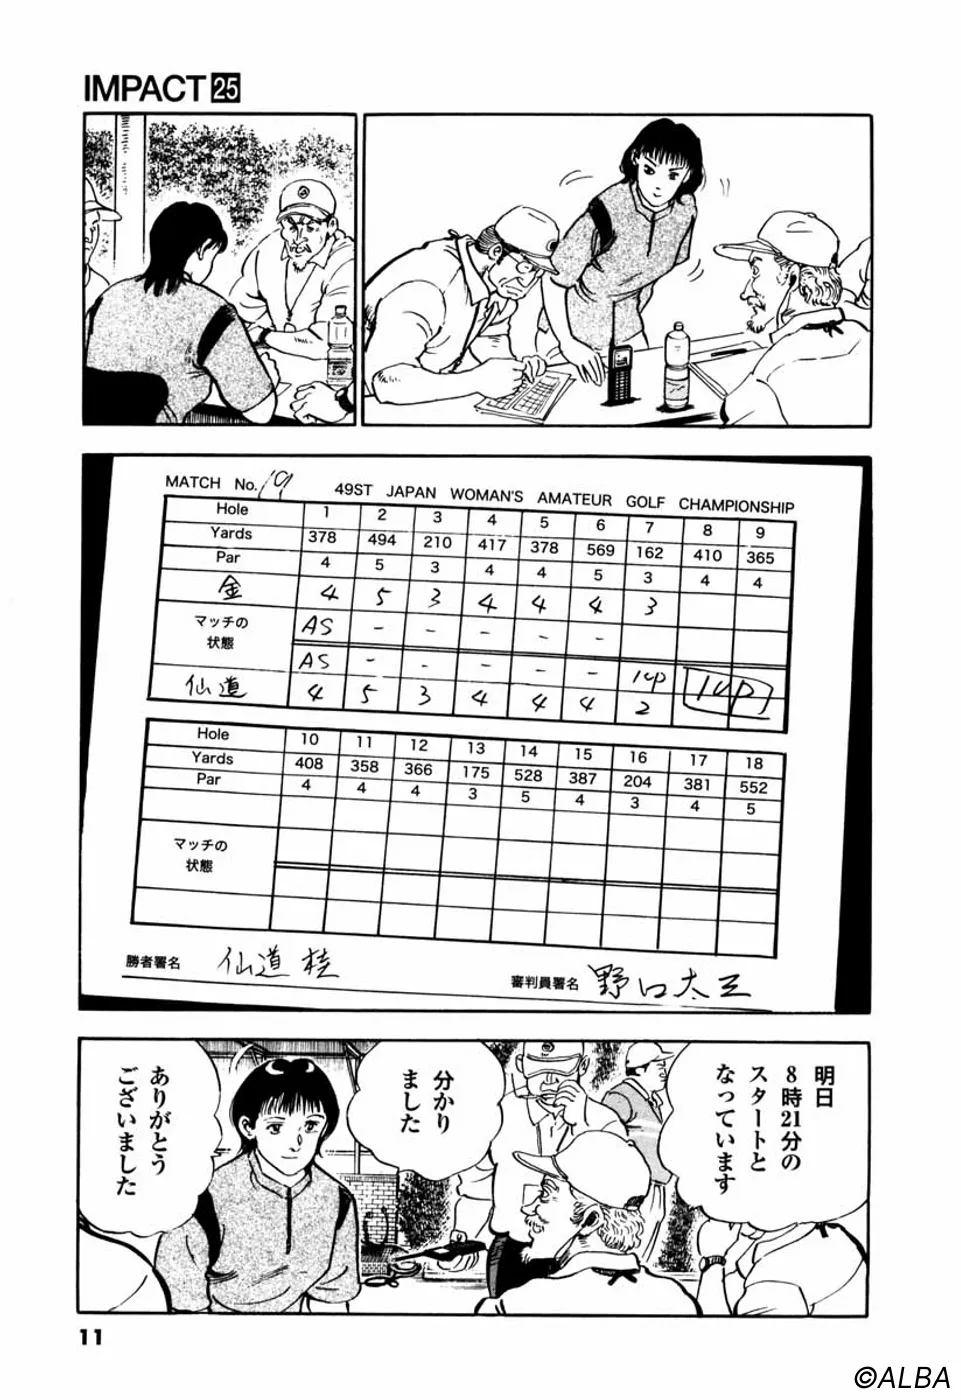 IMPACT 25
MATCH No. 19 49ST JAPAN WOMAN'S AMATEUR GOLF CHAMPIONSHIP
Hole 1 2 3 4 5 6 7 8 9
Yards 378 494 210 417 378 569 162 410 365
Par 4 5 3 4 4 5 3 4 4
金 4 5 3 4 4 4 3
マッチの
状態
AS - - - - -
AS - - - - - 1up 1up
仙道 4 5 3 4 4 4 2
Hole 10 11 12 13 14 15 16 17 18
Yards 408 358 366 175 528 387 204 381 552
Par 4 4 4 3 5 4 3 4 5
マッチの
状態
勝者署名 仙道桂
審判員署名 野口太三
明日
8時21分の
スタートと
なっています
分かり
ました
ありがとう
ございました
11
©ALBA